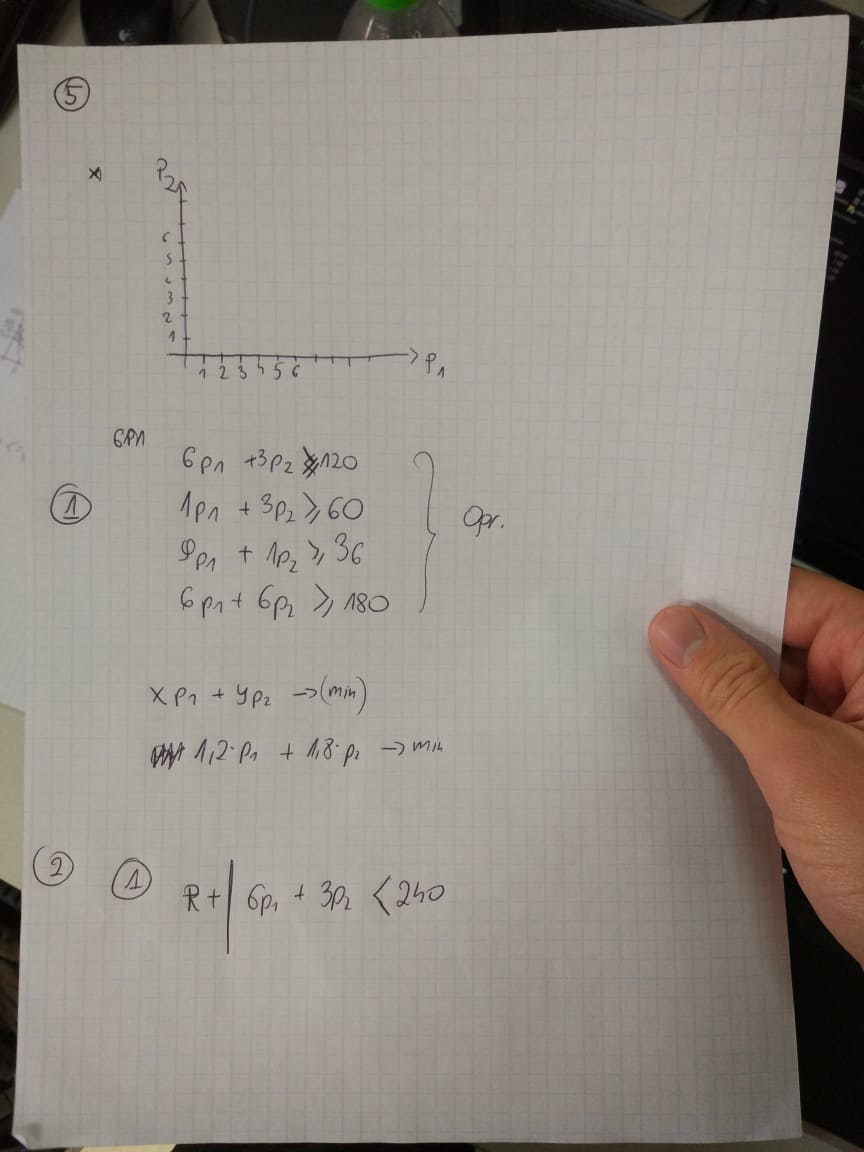 5
x P2
6
5
4
3
2
1
1 2 3 4 5 6 P1
6P1
6p1 + 3p2 ≥ 120
1 1p1 + 3p2 ≥ 60 Opr.
9p1 + 1p2 ≥ 36
6p1 + 6p2 ≥ 180
x p1 + y p2 → (min)
1,2·p1 + 1,8·p2 → min
2 1 R+ | 6p1 + 3p2 < 240